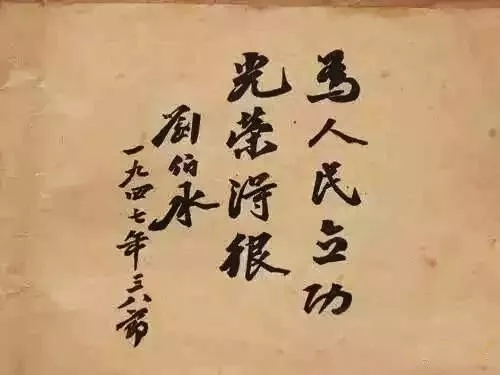 為人民立功
光榮得很
劉伯承
一九四七年三八節